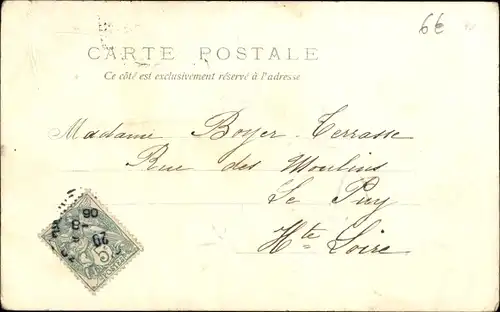 6€
CARTE POSTALE
Ce côté est exclusivement réservé à l'adresse
Madame Boyer-Terrasse
Rue des Moulins
Le Puy
Hte Loire